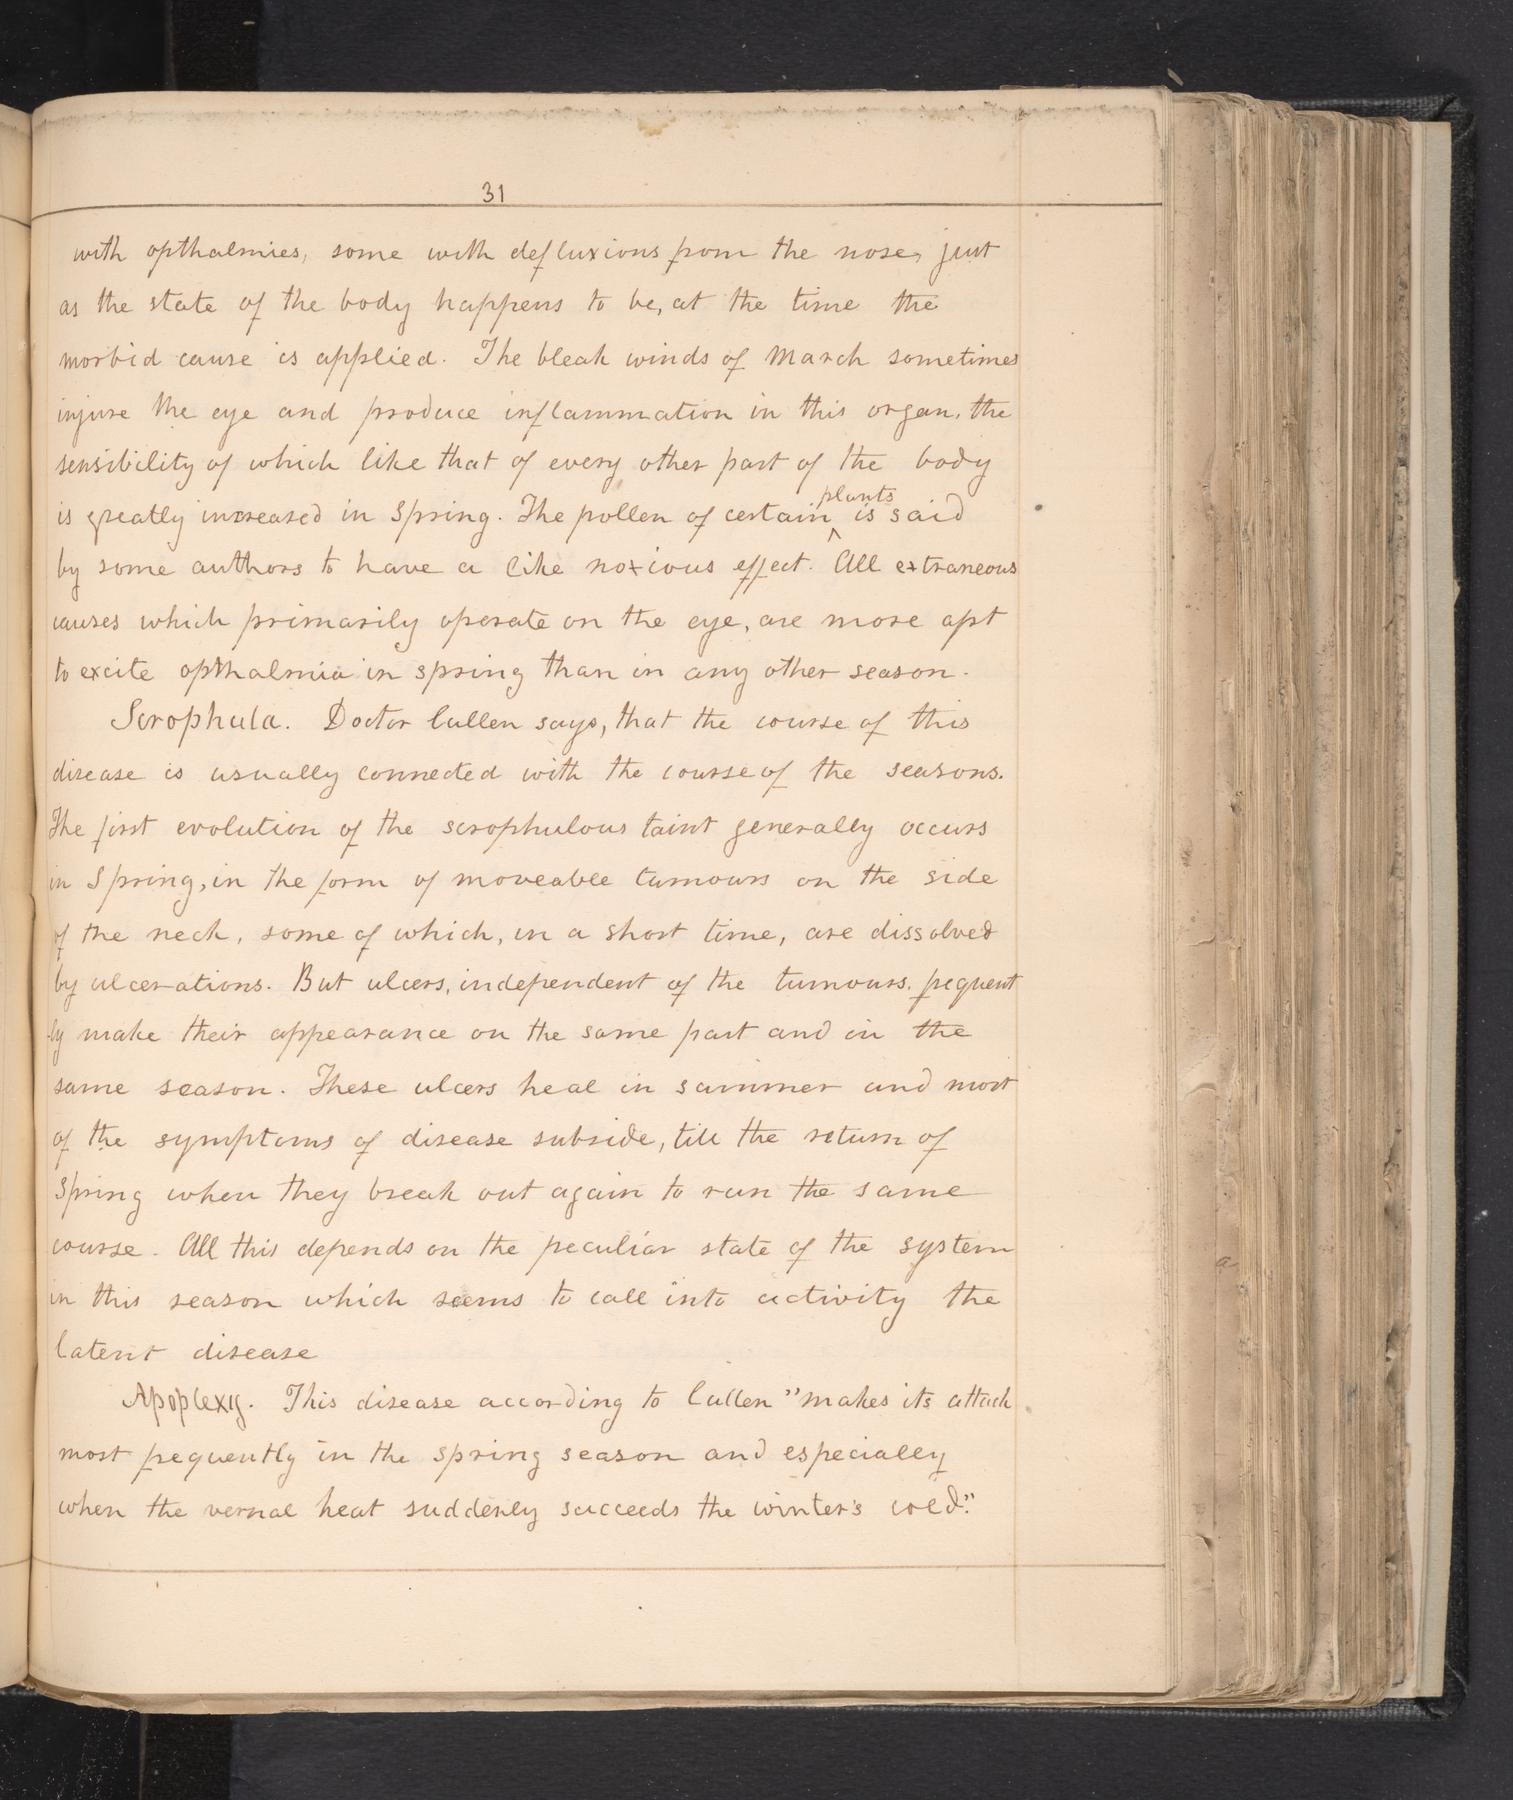 31
with opthalmies, some with defluxions from the nose, just
as the state of the body happens to be, at the time the
morbid cause is applied. The bleak winds of March sometimes
injure the eye and produce inflammation in this organ, the
sensibility of which like that of every other part of the body
plants
is greatly increased in Spring. The pollen of certain ^ is said
by some authors to have a like noxious effect. All extraneous
causes which primarily operate on the eye, are more apt
to excite opthalmia in spring than in any other season.
Scrophula. Doctor Cullen says, that the course of this
disease is usually connected with the course of the seasons.
The first evolution of the scrophulous taint generally occurs
in Spring, in the form of moveable tumours on the side
of the neck, some of which, in a short time, are dissolved
by ulcerations. But ulcers, independent of the tumours, frequent
ly make their appearance on the same part and in the
same season. These ulcers heal in summer and most
of the symptoms of disease subside, till the return of
Spring when they break out again to run the same
course. All this depends on the peculiar state of the system
in this season which seems to call into activity the
latent disease
Apoplexy. This disease according to Cullen "makes its attack
most frequently in the spring season and especially
when the vernal heat suddenly succeeds the winter's cold."